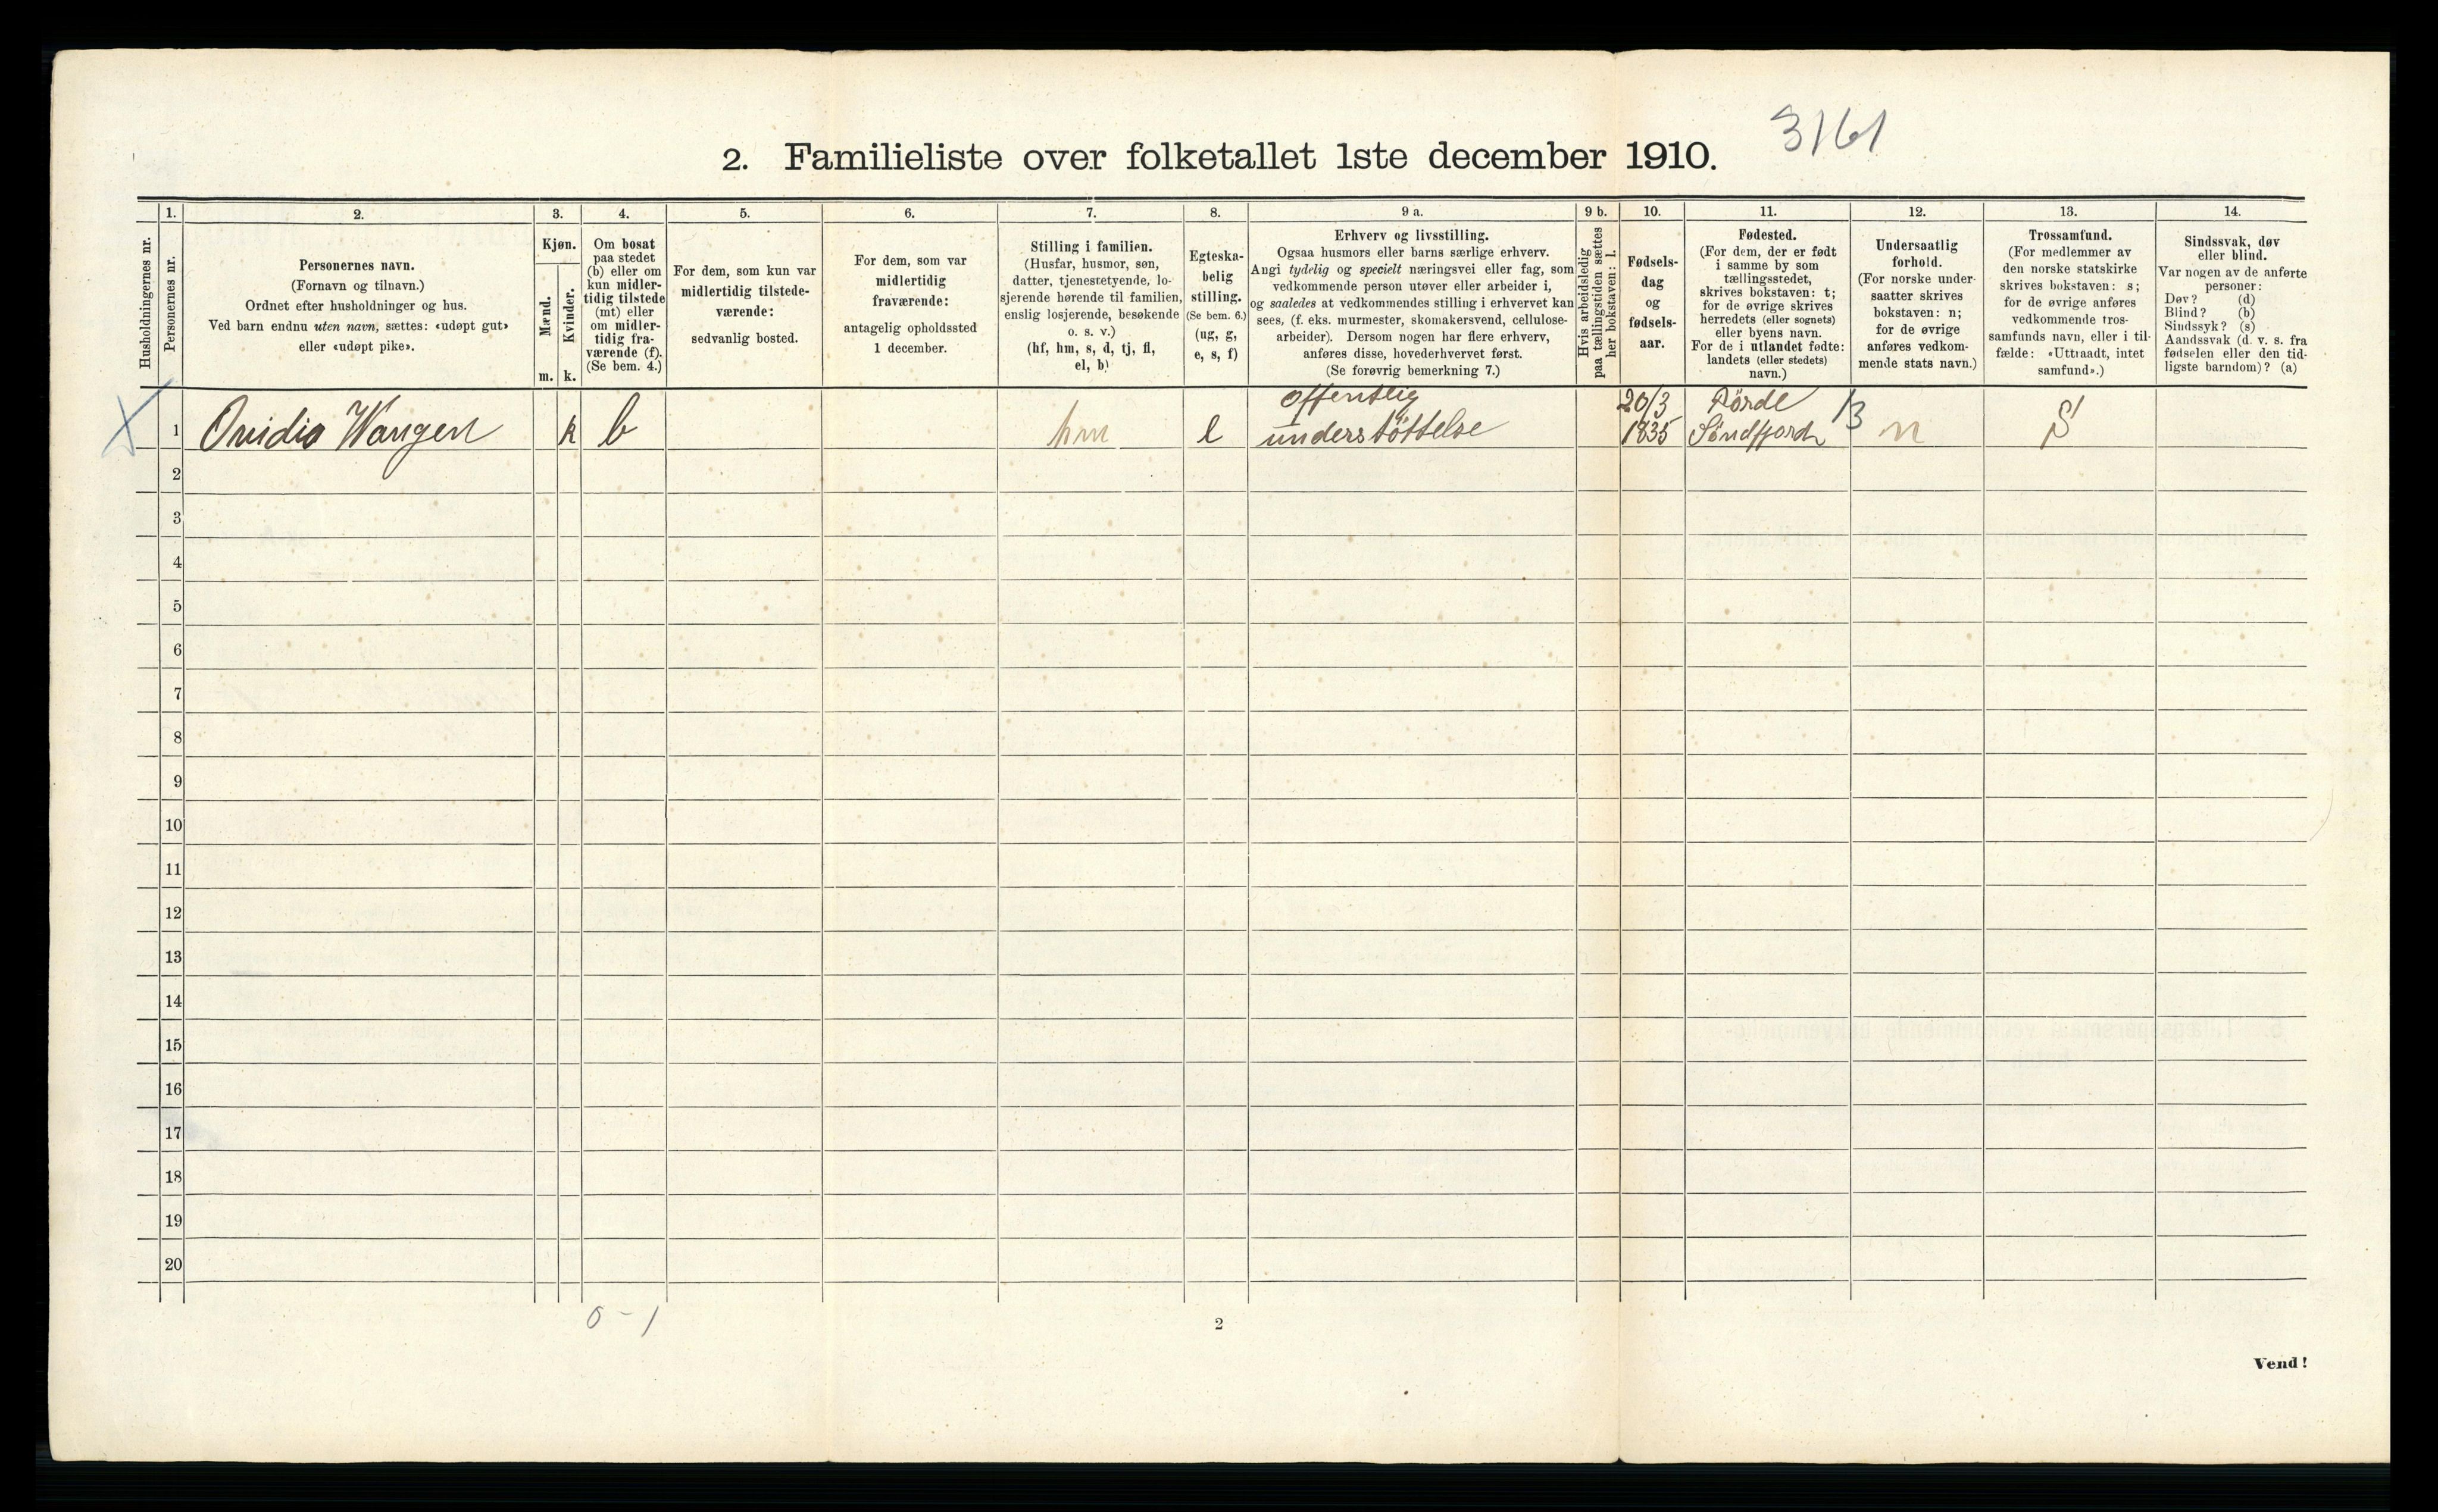 3161
2. Familieliste over folketallet 1ste december 1910.
1. 2. 3. 4. 5. 6. 7. 8. 9 a. 9 b. 10. 11. 12. 13. 14.
Husholdningernes nr.
Personernes nr.
Personernes navn.
(Fornavn og tilnavn.)
Ordnet efter husholdninger og hus.
Ved barn endnu uten navn, sættes: «udøpt gut»
eller «udøpt pike».
Kjøn.
Mænd.
m.
Kvinder.
k.
Om bosat
paa stedet
(b) eller om
kun midler-
tidig tilstede
(mt) eller
om midler-
tidig fra-
værende (f).
(Se bem. 4.)
For dem, som kun var
midlertidig tilstede-
værende:
sedvanlig bosted.
For dem, som var
midlertidig
fraværende:
antagelig opholdssted
1 december.
Stilling i familien.
(Husfar, husmor, søn,
datter, tjenestetyende, lo-
sjerende hørende til familien,
enslig losjerende, besøkende
o. s. v.)
(hf, hm, s, d, tj, fl,
el, b)
Egteska-
belig
stilling.
(Se bem. 6.)
(ug, g,
e, s, f)
Erhverv og livsstilling.
Ogsaa husmors eller barns særlige erhverv.
Angi tydelig og specielt næringsvei eller fag, som
vedkommende person utøver eller arbeider i,
og saaledes at vedkommendes stilling i erhvervet kan
sees, (f. eks. murmester, skomakersvend, cellulose-
arbeider). Dersom nogen har flere erhverv,
anføres disse, hovederhvervet først.
(Se forøvrig bemerkning 7.)
Hvis arbeidsledig
paa tællingstiden sættes
her bokstaven: l.
Fødsels-
dag
og
fødsels-
aar.
Fødested.
(For dem, der er født
i samme by som
tællingsstedet,
skrives bokstaven: t;
for de øvrige skrives
herredets (eller sognets)
eller byens navn.
For de i utlandet fødte:
landets (eller stedets)
navn.)
Undersaatlig
forhold.
(For norske under-
saatter skrives
bokstaven: n;
for de øvrige
anføres vedkom-
mende stats navn.)
Trossamfund.
(For medlemmer av
den norske statskirke
skrives bokstaven: s;
for de øvrige anføres
vedkommende tros-
samfunds navn, eller i til-
fælde: «Uttraadt, intet
samfund».)
Sindssvak, døv
eller blind.
Var nogen av de anførte
personer:
Døv? (d)
Blind? (b)
Sindssyk? (s)
Aandssvak (d. v. s. fra
fødselen eller den tid-
ligste barndom)? (a)
offentlig 20/3 Förde 13
1 Ovidia Wangen k b hm e understøttelse 1835 Söndfjord n S
2
3
4
5
6
7
8
9
10
11
12
13
14
15
16
17
18
19
20
0 - 1
2
Vend!